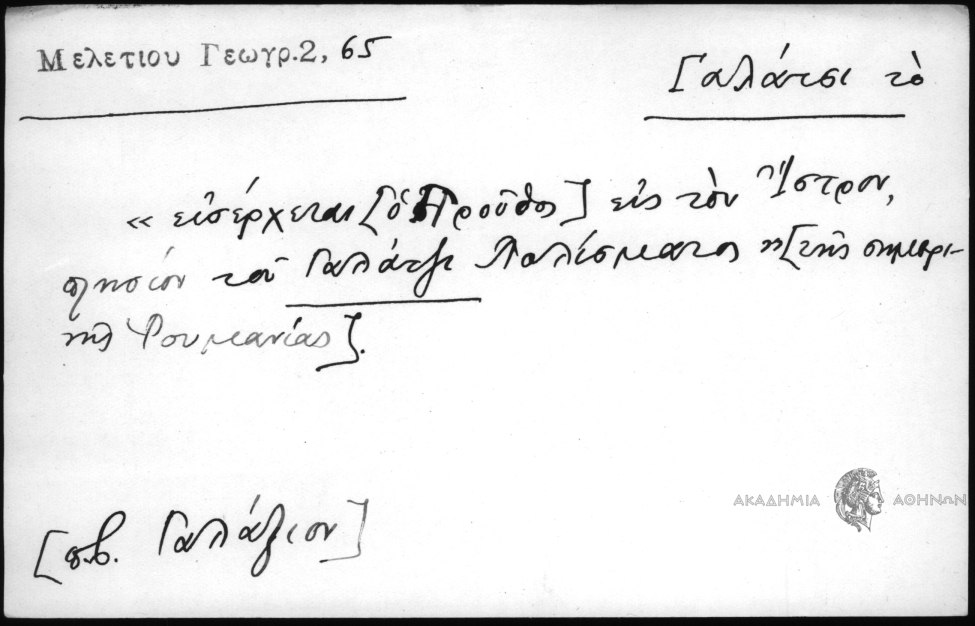 Μελετιου Γεωγρ.2, 65
Γαλάτσι τὸ
« εἰσέρχεται [ὁ Προῦθος] εἰς τὸν Ἴστρον,
πλησίον τοῦ Γαλάτζι Πολίσματος » [τῆς σημερι-
νῆς Ρουμανίας].
[πβ. Γαλάζιον]
ΑΚΑΔΗΜΙΑ ΑΘΗΝΩΝ